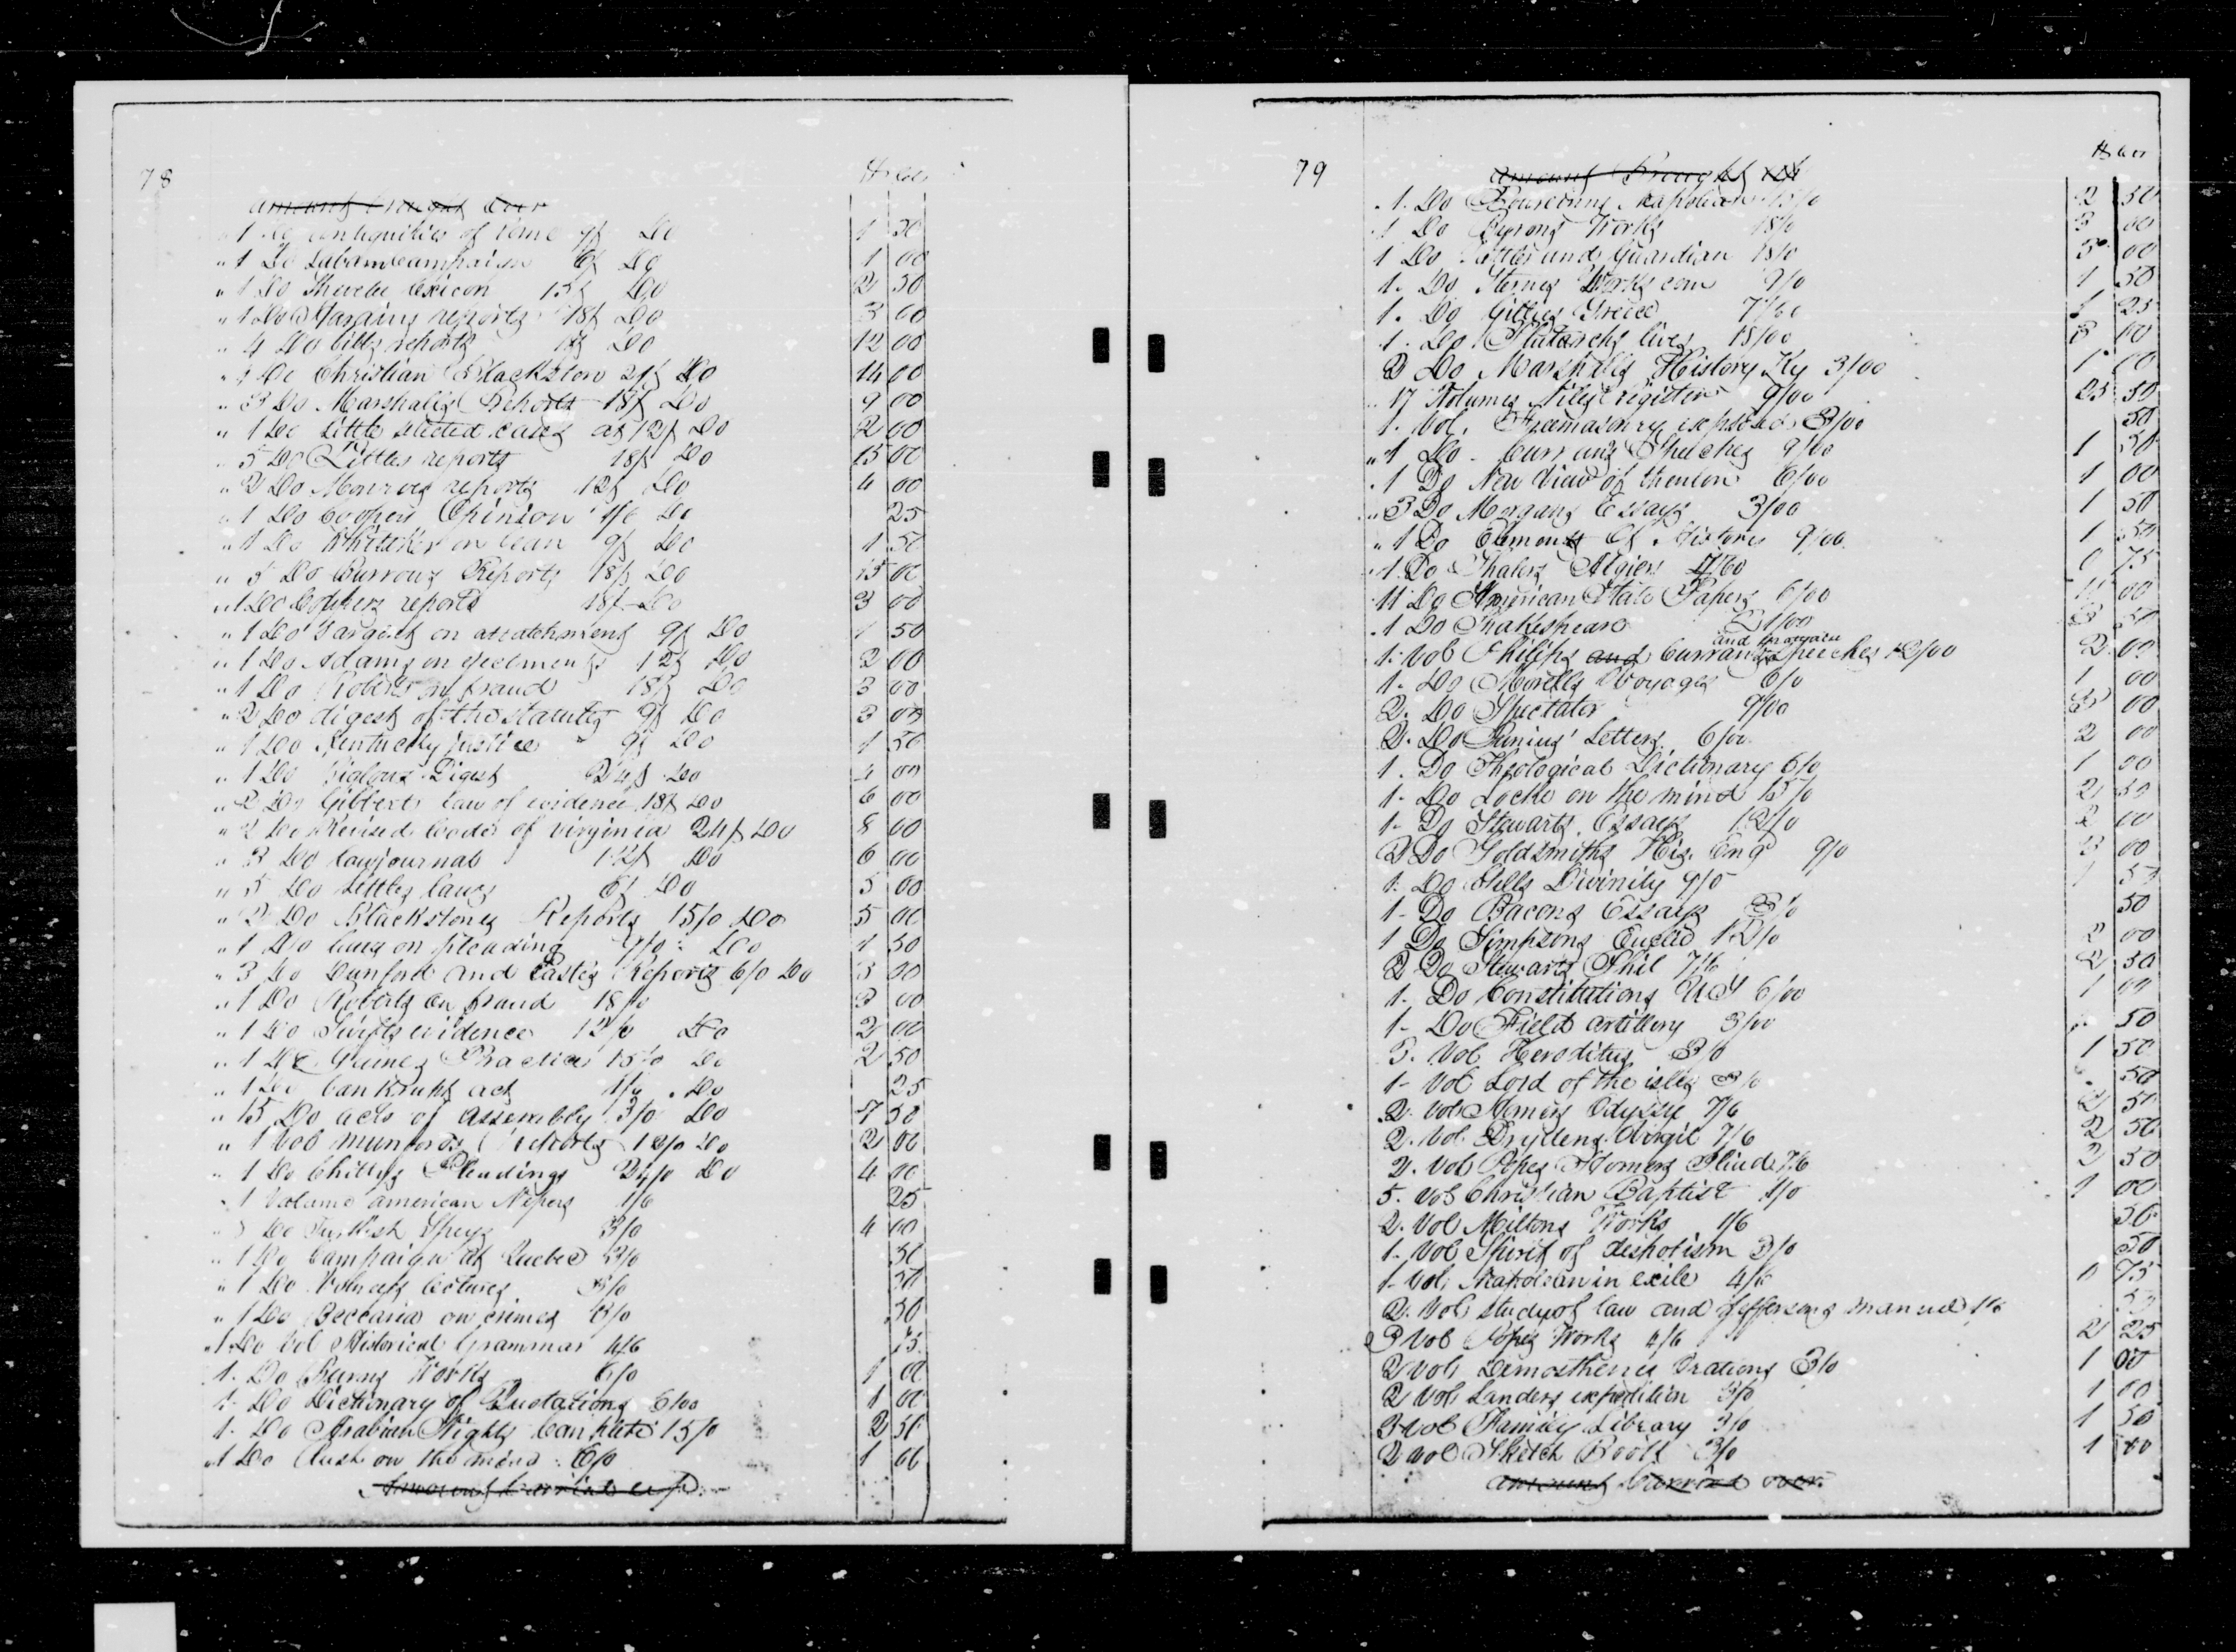 78
$ cts
amount brought over
" 1 Do antiquities of rome 9/ Do 1 50
" 1 Do campaign 6/ Do 1 00
" 1 Do lexicon 15/ Do 2 50
" 1 Do Hardins reports 18/ Do 3 00
" 4 Do bibbs reports 18/ Do 12 00
" 4 Do Christian Blackston 21/ Do 14 00
" 3 Do Marshalls Reports 18/ Do 9 00
" 1 Do Little selected cases at 12/ Do 2 00
" 5 Do Littles reports 18/ Do 15 00
" 2 Do Monroes reports 12/ Do 4 00
" 1 Do Coopers Opinion 1/6 Do 25
" 1 Do on lean 9/ Do 1 50
" 5 Do Burrows Reports 18/ Do 15 00
" 1 Do reports 18/ Do 3 00
" 1 Do on atatchment 9/ Do 1 50
" 1 Do Adams on ejectments 12/ Do 2 00
" 1 Do Roberts on fraud 18/ Do 3 00
" 2 Do digest of the statutes 9/ Do 3 00
" 1 Do Kentucky justice 9/ Do 1 50
" 1 Do Digest 24/ Do 4 00
" 2 Do Gibberts law of evidence 18/ Do 6 00
" 2 Do Revised Codes of virginia 24/ Do 8 00
" 3 Do lawjournal 12/ Do 6 00
" 5 Do Littles laws 6/ Do 5 00
" 2 Do Blackstones Reports 15/0 Do 5 00
" 1 Do laws on pleading 9/0 Do 1 50
" 3 Do Dunford and Easts Reports 6/0 Do 3 00
" 1 Do Roberts on fraud 18/0 3 00
" 1 Do Swifts evidence 12/0 Do 2 00
" 1 Do Practice 15/0 Do 2 50
" 1 Do bankrupt act 1/6 Do 25
" 15 Do acts of assembly 3/0 Do 7 50
" 1 Vol munfords reports 12/0 Do 2 00
" 1 Do Chittys Pleadings 24/0 Do 4 00
" 1 Volume american Nepos 1/6 25
Do Turkish Spys 3/0 4 00
" 1 Do Campaign at Quebec 3/0 50
" 1 Do Volneys lectures 3/0 50
" 1 Do Beccaria on crimes 3/0 50
" 1 Do Vol Historical Grammar 4/6 75
1. Do Burns Works 6/0 1 00
1. Do Dictionary of Quotations 6/00 1 00
1. Do Arabian Nights 15/0 2 50
" 1 Do Rush on the mind 6/0 1 00
Amount Carried up
79
$ cts
amount Brought up
1. Do Napoleon 15/0 2 50
1 Do Byrons Works 18/0 3 00
1 Do and Guardian 18/0 00
1. Do Sternes Works com 9/0 1 50
1. Do Gillies Greece 7/60 1 25
1. Do Plutarchs lives 18/00 3 00
2 Do Marshalls History Ky 3/00 1 00
17 Volumes Niles register 9/00 25 50
1. Vol. Freemasonry exposed 3/00 50
" 1 Do Currans Speeches 9/00 1 50
1 Do New View of 6/00 1 00
" 3 Do Morgans Essays 3/00 1 50
" 1 Do Element Of History 9/00 1 50
1 Do Shalers Algiers 4/60 0 75
11 Do American State Papers 6/00 11 00
1 Do Shakespeare 21/00 3 50
and
1. Vol Philips and Curran Speeches 12/00 2 00
1. Do Morells Voyages 6/0 1 00
2. Do Spectator 9/00 3 00
2. Do Junius' Letters 6/00 2 00
1. Do Theological Dictionary 6/0 1 00
1. Do Locke on the mind 15/0 2 50
1. Do Stewarts Essays 12/0 2 00
2 Do Goldsmiths His. Eng 9/0 3 00
1. Do Divinity 9/0 1 50
1- Do Bacons Essays 3/0 50
1 Do Simpsons Euclid 12/0 2 00
2 Do Stewarts Phil 7/6 2 50
1. Do Constitutions U S 6/00 1 00
1- Do Field artillery 3/00 50
3. Vol Heroditus 3/0 1 50
1- Vol Lord of the isles 3/0 50
2. Vol Homers Odyssy 7/6 2 50
2. Vol. Drydens Virgil 7/6 2 50
2. Vol Popes Homers Iliad 7/6 2 50
5. Vol Christian Baptist 1/0 1 00
2. Vol Miltons Works 1/6 50
1. Vol Spirit of despotism 3/0 50
1- Vol. Napoleon in exile 4/6 0 75
2. Vol Study of law and Jeffersons manuel 1/6 50
3 Vol Popes Works 4/6 2 25
2 Vol Demosthenes Orations 3/0 1 00
2 Vol Landers expedition 3/0 1 00
3 Vol Family Library 3/0 1 50
2 Vol Sketch Book 3/0 1 00
amount Carried over